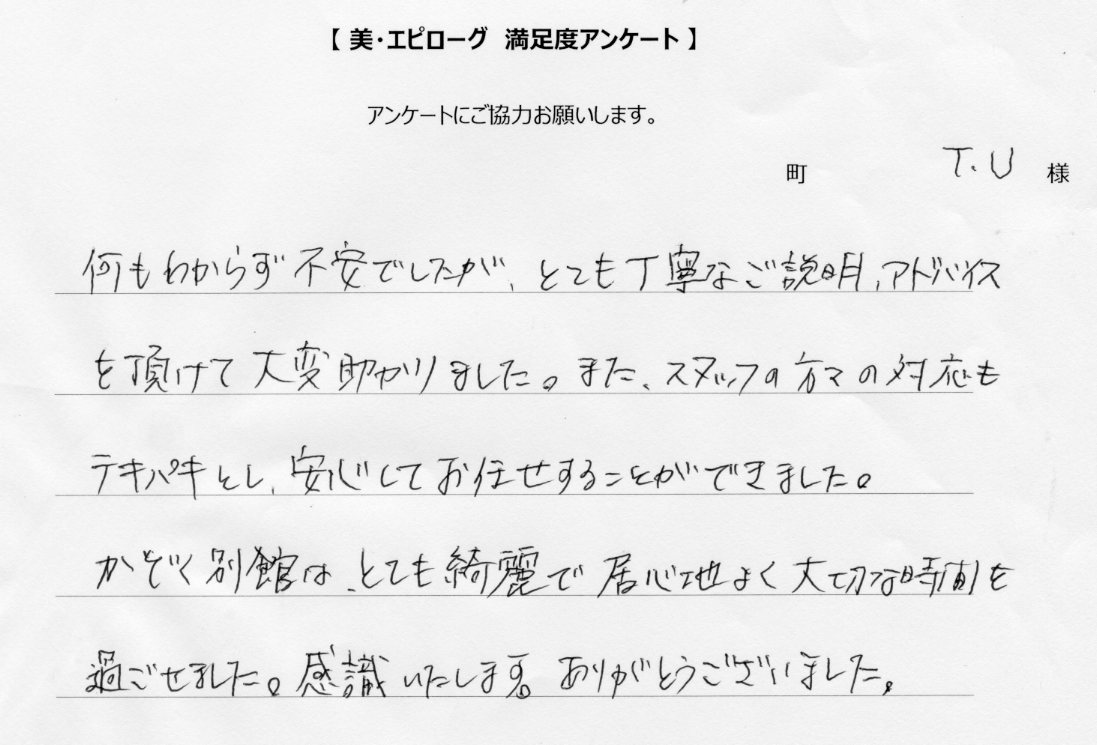 【 美・エピローグ 満足度アンケート 】
アンケートにご協力お願いします。
町 T.U 様
何もわからず不安でしたが、とても丁寧なご説明、アドバイス
を頂けて大変助かりました。また、スタッフの方々の対応も
テキパキとし、安心してお任せすることができました。
かぞく別館は、とても綺麗で居心地よく大切な時間を
過ごせました。感識いたします。ありがとうございました。